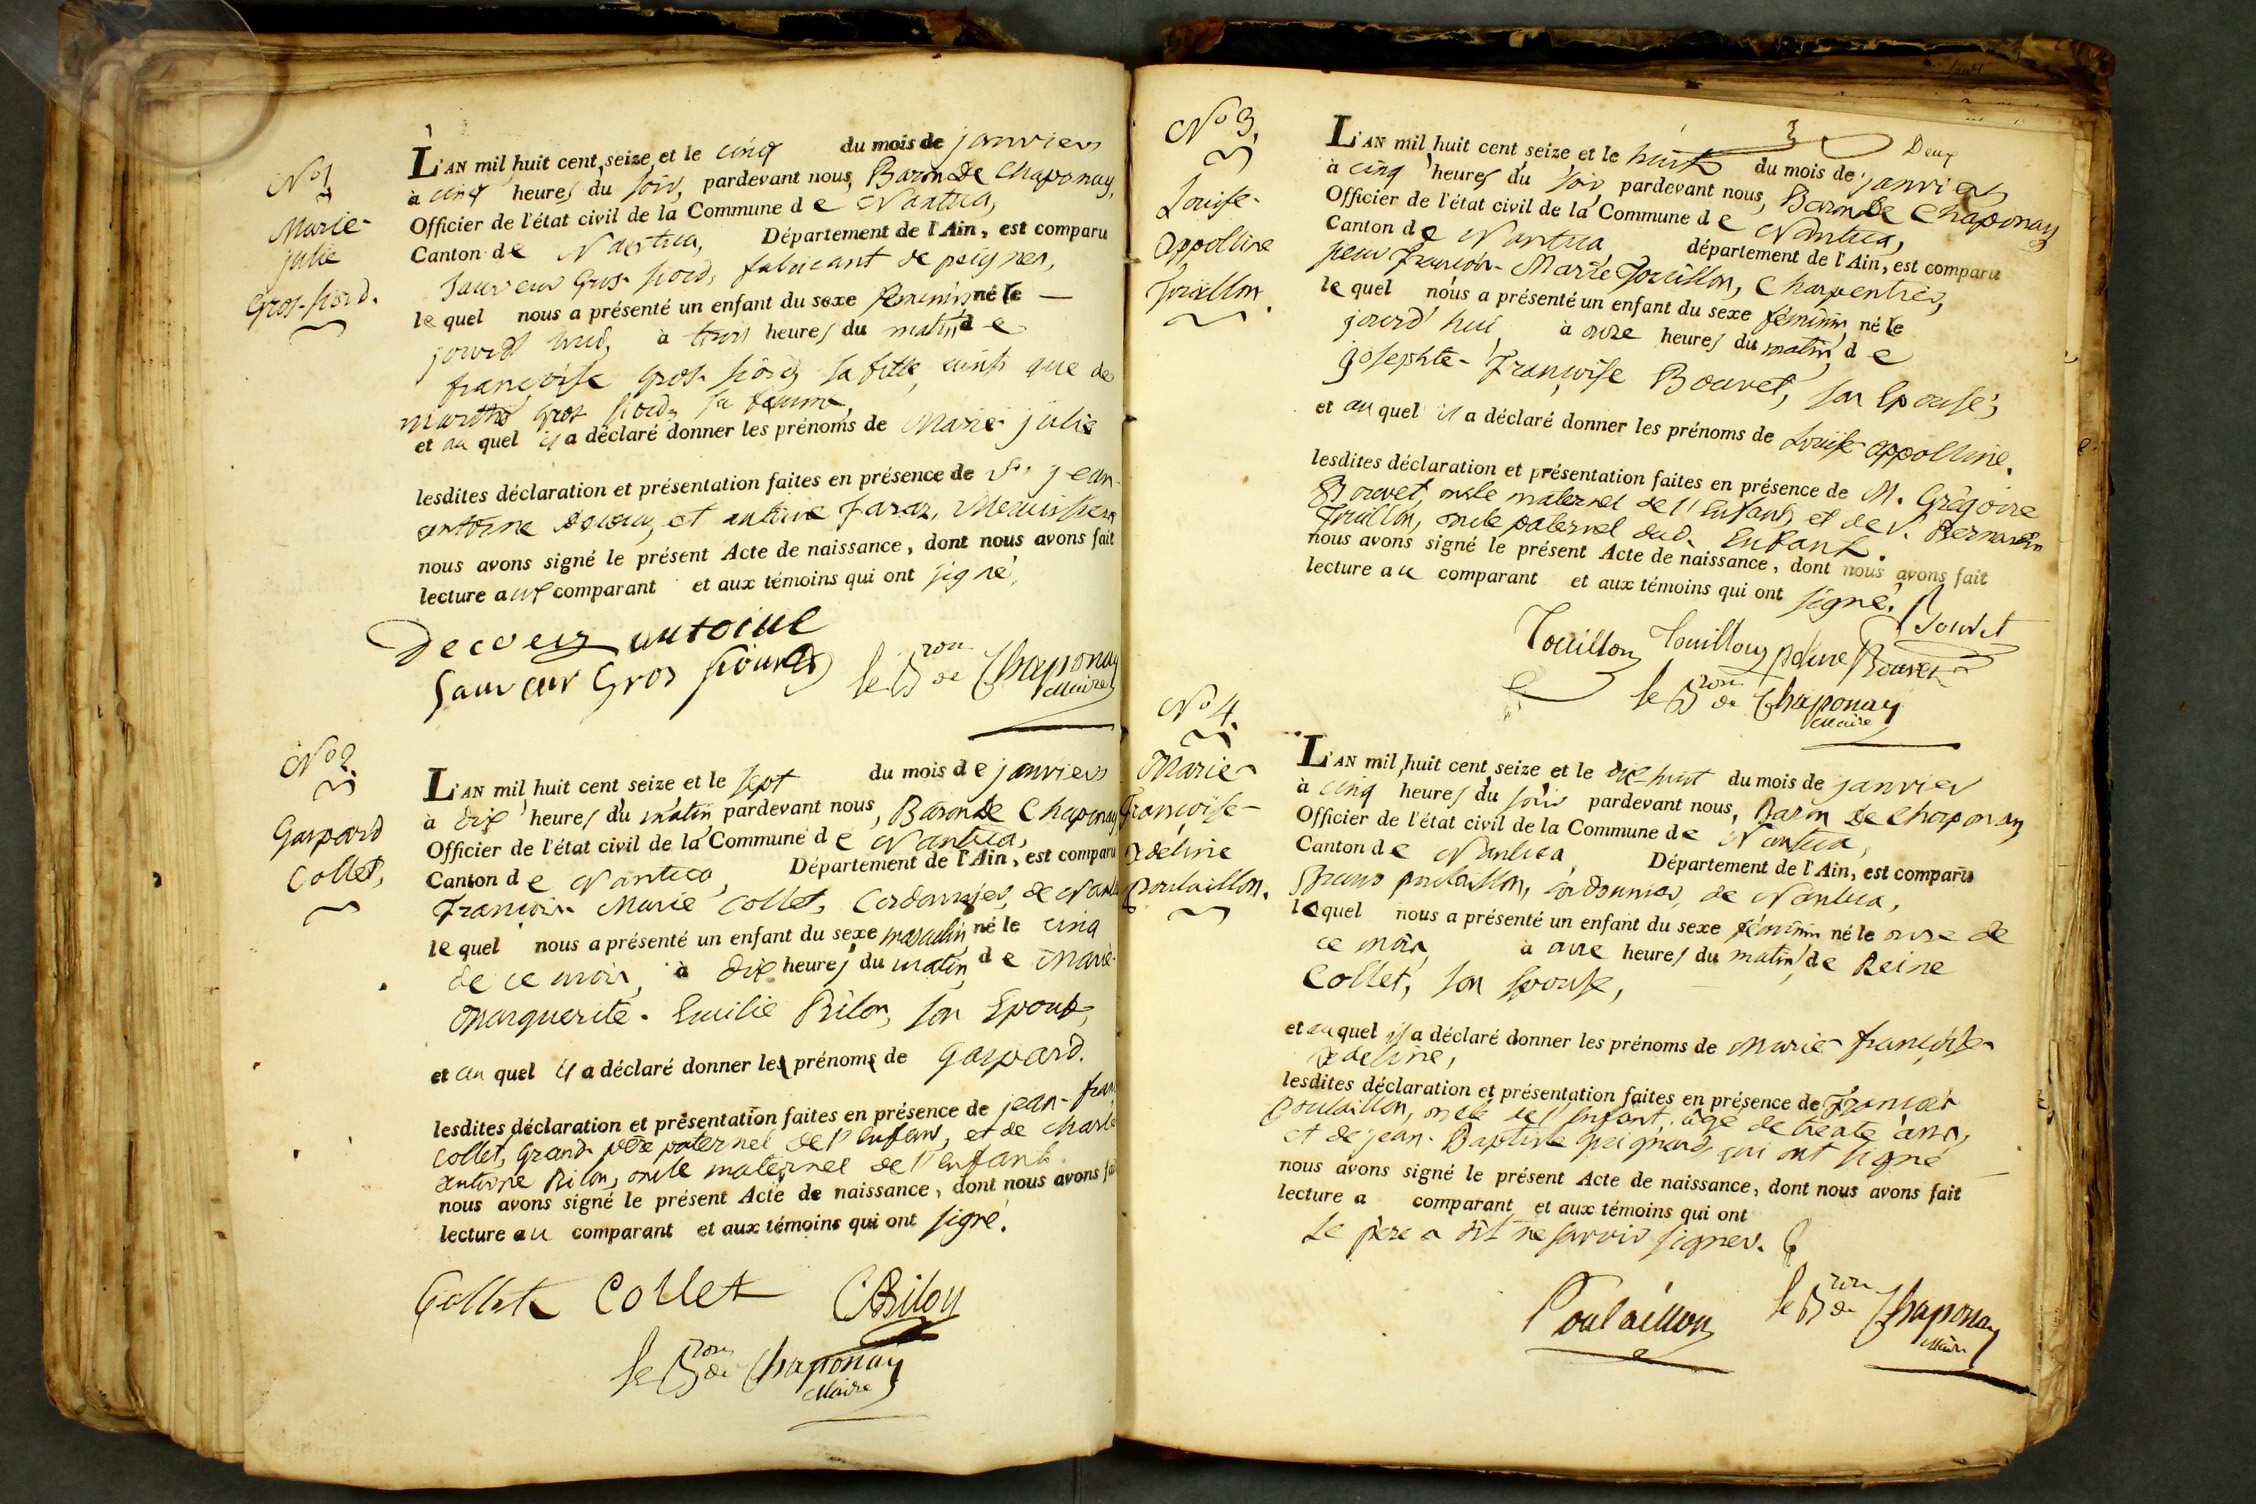 No 1.
Marie-
julie
Gros-fiord.
L'AN mil huit cent seize et le cinq du mois de janvier
à cinq heures du soir, pardevant nous, Baron De Chaponay,
Officier de l'état civil de la Commune de Nantua,
Canton de Nantua, Département de l'Ain, est comparu
Sauveur Gros-fiord, fabricant de peignes,
lequel nous a présenté un enfant du sexe féminin né le
jourd'hui, à trois heures du matin de
françoise Gros-fiord sa fille, ainsi que de
Gros fiord, sa femme
et au quel il a déclaré donner les prénoms de Marie-julie
lesdites déclaration et présentation faites en présence de Sr. jean-
antoine et antoine Faraz, Menuisiers
nous avons signé le présent Acte de naissance, dont nous avons fait
lecture aux comparant et aux témoins qui ont signé,
antoine
Sauveur Gros fiourd le Bron de Chaponay
Maire
No 2.
Gaspard
Collet,
L'AN mil huit cent seize et le sept du mois de janvier
à dix heures du matin pardevant nous, Baron De Chaponay
Officier de l'état civil de la Commune de Nantua,
Canton de Nantua, Département de l'Ain, est comparu
François-Marie Collet, Cordonnier, de Nantua
lequel nous a présenté un enfant du sexe masculin né le cinq
de ce mois, à dix heures du matin, de Marie-
Marguerite-Emilie Bilon, son Epouse,
et au quel il a déclaré donner les prénoms de Gaspard.
lesdites déclaration et présentation faites en présence de jean-fran
Collet, Grand père paternel de l'enfant, et de Charle
antoine Bilon, oncle maternel de l'enfant.
nous avons signé le présent Acte de naissance, dont nous avons fait
lecture au comparant et aux témoins qui ont signé.
Collet Collet CBilon
le Bron de Chaponay
Maire
Deux
No 3,
Louise-
Appolline
Touillon.
L'AN mil huit cent seize et le huit du mois de janvier
à cinq heures du soir, pardevant nous, Baron De Chaponay
Officier de l'état civil de la Commune de Nantua,
Canton de Nantua, département de l'Ain, est comparu
sieur François-Marie Touillon, Charpentier,
lequel nous a présenté un enfant du sexe féminin né le
jourd'hui, à onze heures du matin, de
josephte-Françoise Bouvet, son Epouse,
et au quel il a déclaré donner les prénoms de Louise appolline.
lesdites déclaration et présentation faites en présence de M. Grégoire
Bouvet, oncle maternel de l'Enfant, et de S. Bernardin
Touillon, oncle paternel dud. Enfant.
nous avons signé le présent Acte de naissance, dont nous avons fait
lecture au comparant et aux témoins qui ont signé.
Touillon Touillon Bouvet
Bouvet
le Bron de Chaponay
Maire
No 4.
Marie-
Françoise-
Adeline
Poulaillon.
L'AN mil huit cent seize et le dix-huit du mois de janvier
à cinq heures du soir pardevant nous, Baron De Chaponay
Officier de l'état civil de la Commune de Nantua,
Canton de Nantua, Département de l'Ain, est comparu
poulaillon, cordonnier, de Nantua,
lequel nous a présenté un enfant du sexe féminin né le onze de
ce mois, à onze heures du matin, de Reine
Collet, son Epouse,
et au quel il a déclaré donner les prénoms de Marie-françoise-
Adeline,
lesdites déclaration et présentation faites en présence de François
Poulaillon, oncle de l'Enfant, âgé de trente ans,
et de jean-Baptiste qui ont signé
nous avons signé le présent Acte de naissance, dont nous avons fait
lecture a comparant et aux témoins qui ont
Le père a dit ne savoir signer.
Poulaillon le Bron de Chaponay
Maire